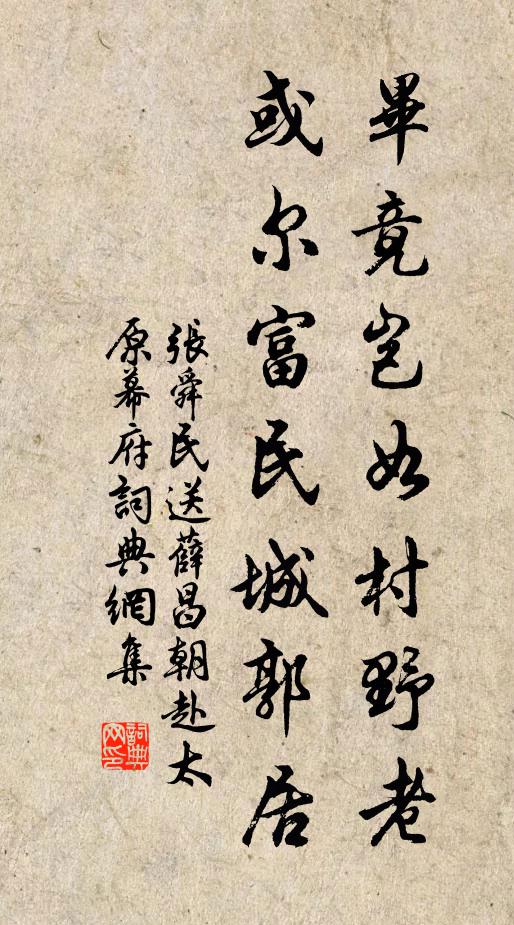 畢竟豈如村野老
或尔富民城郭居
張舜民送薛昌朝赴太
原幕府詞典網集
詞典网印